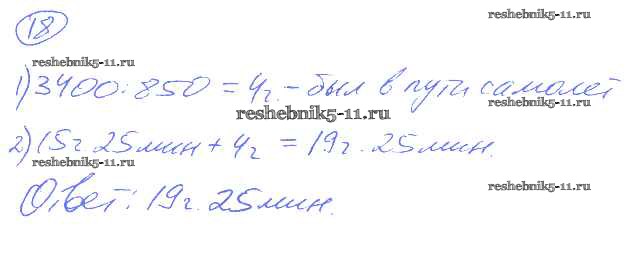 18
reshebnik5-11.ru
reshebnik5-11.ru
1) 3400:850 = 4г. - был в пути самолет
reshebnik5-11.ru
reshebnik5-11.ru
2) 15г 25мин + 4г = 19г. 25мин.
reshebnik5-11.ru
Ответ: 19г. 25мин.
reshebnik5-11.ru
reshebnik5-11.ru